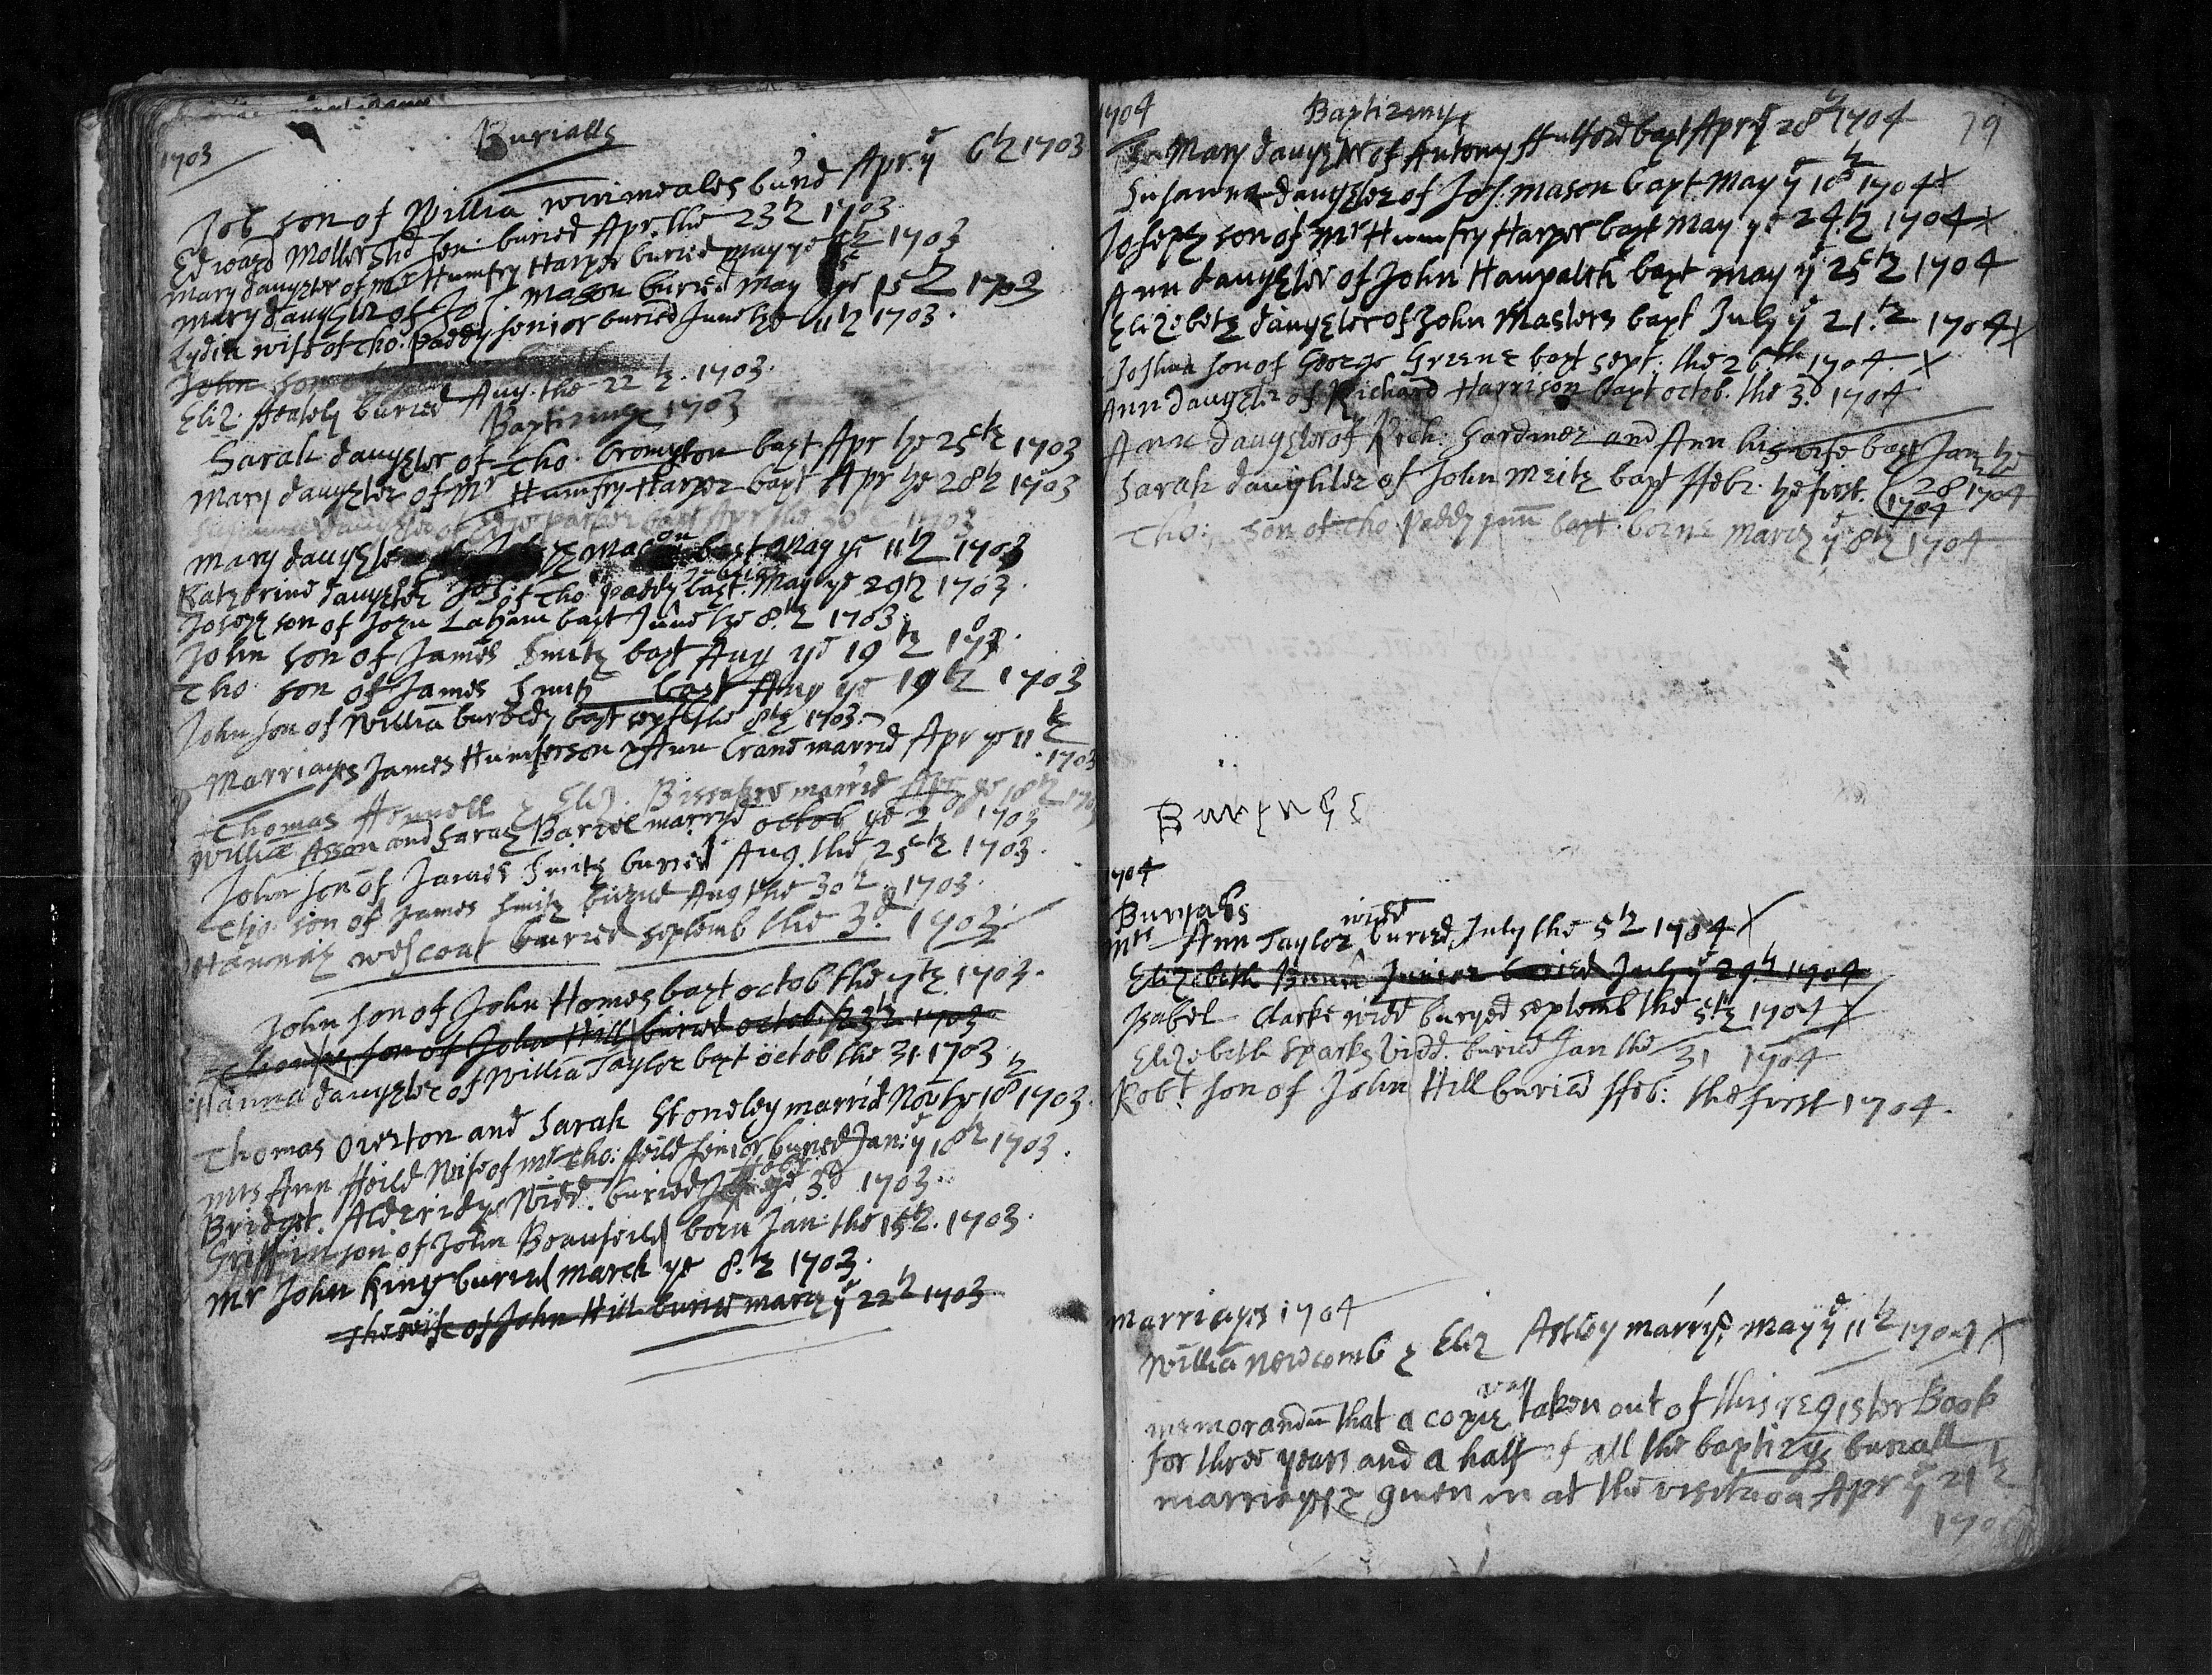 1703
Burialls
Job son of Willia winimeales buri'd Apr: ye 6th 1703
Edward Mollershd sen: buried Apr. the 23th 1703
Mary daughter of Mr Humfry Harper buried may ye 1703
Mary daughter of Jos. Mason buried May ye 15th 1703
Lydia wife of Tho: Paddy senior buried June ye 11th 1703.
John son
Eliz. Heately buried Aug. the 22th. 1703.
Baptizings 1703
Sarah daughter of Tho. Crompton bapt Apr ye 25th 1703
Mary daughter of Mr Humfry Harper bapt Apr ye 28th 1703
daughter of parker bapt Apr the 30 1703
Mary daughter Mason bapt May ye 11th 1703
Katherine daughter of Tho: Paddy junior bapt. May ye 29th 1703
Joseph son of John Laham bapt June ye 8.th 1703
John son of James Smith bapt Aug ye 19th 1703.
Tho. son of James Smith bapt Aug ye 19th 1703
John son of Willia burbidg bapt sept the 8th 1703.
Marriages James Humferson & Ann Crane married Apr ye 11th
1703
Thomas Hennell & Eliz. married ye 18th 1703
Willia Asson and Sarah married octob ye 2d 1703
John son of James Smith buried Aug. the 25th 1703.
Tho. son of James Smith buried Aug the 30th. 1703.
Hannah wescoat buried septemb the 3.d 1703.
John son of John Homes bapt octob the 7th. 1703.
son of John Hill buried octob 1703
Hanna daughter of Willia Taylor bapt octob the 31. 1703
Thomas Overton and Sarah Stoneley marri'd Nov ye 18th 1703.
Mrs Ann ffeild Wife of Mr Tho: ffeild senior buried Jan: ye 18th 1703.
Bridget. Alderidge Widd. buried ffebr ye 3d 1703.
Griffin son of John Beaufeild born Jan: the 15th. 1703.
Mr John King buried march ye 8.th 1703.
The wife of John Hill buried march ye 22th 1703
1704
Baptizings
79
Mary daughter of Antony ffulford bapt Apr ye 28th 1704
Susanna daughter of Jos: Mason bapt May ye 18th 1704 x
Joseph son of Mr Humfry Harper bapt May ye 24.th 1704 x
Ann daughter of John Hanpatch bapt may ye 25th 1704
Elizebeth daughter of John Masters bapt July ye 21.th 1704 x
Joshua son of George Greene bapt sept: the 26th 1704. x
Ann daughter of Richard Harrison bapt octob. the 3.d 1704
Ann daughter of Rich: Gardiner and Ann his wife bapt Jan ye
28 1704
Sarah daughter of John Meith bapt ffebr. ye first. 1704
Tho: son of Tho Paddy jun bapt. borne March ye 8th 1704
1704
Buryals
Mrs Ann Taylor widd buried July the 5th 1704 x
Elizebeth Junior buried July ye 29.th 1704
Isabel Clarke widd buryed septemb the 5th 1704 x
Elizebeth Sparks Widd. buried Jan the 31 1704
Robt. son of John Hill buried ffeb: the first 1704.
Marriages 1704
Willia Newcomb & Eliz Astley marryed may ye 11th 1704 x
memorandu that a copie was taken out of this register Book
for three years and a half of all the baptizgs buriall
marriages & given in at the visitation Apr ye 21th